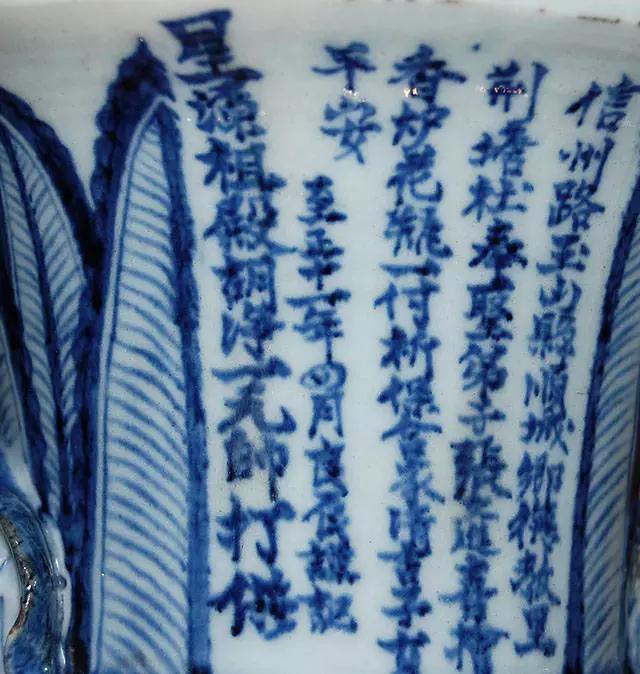 信州路玉山縣順城鄉德教里
荊塘社奉聖弟子張文進喜捨
香炉花瓶一付祈保合家清吉子女
平安
至正十一年四月良辰謹記
星源祖殿胡淨一元帥打供